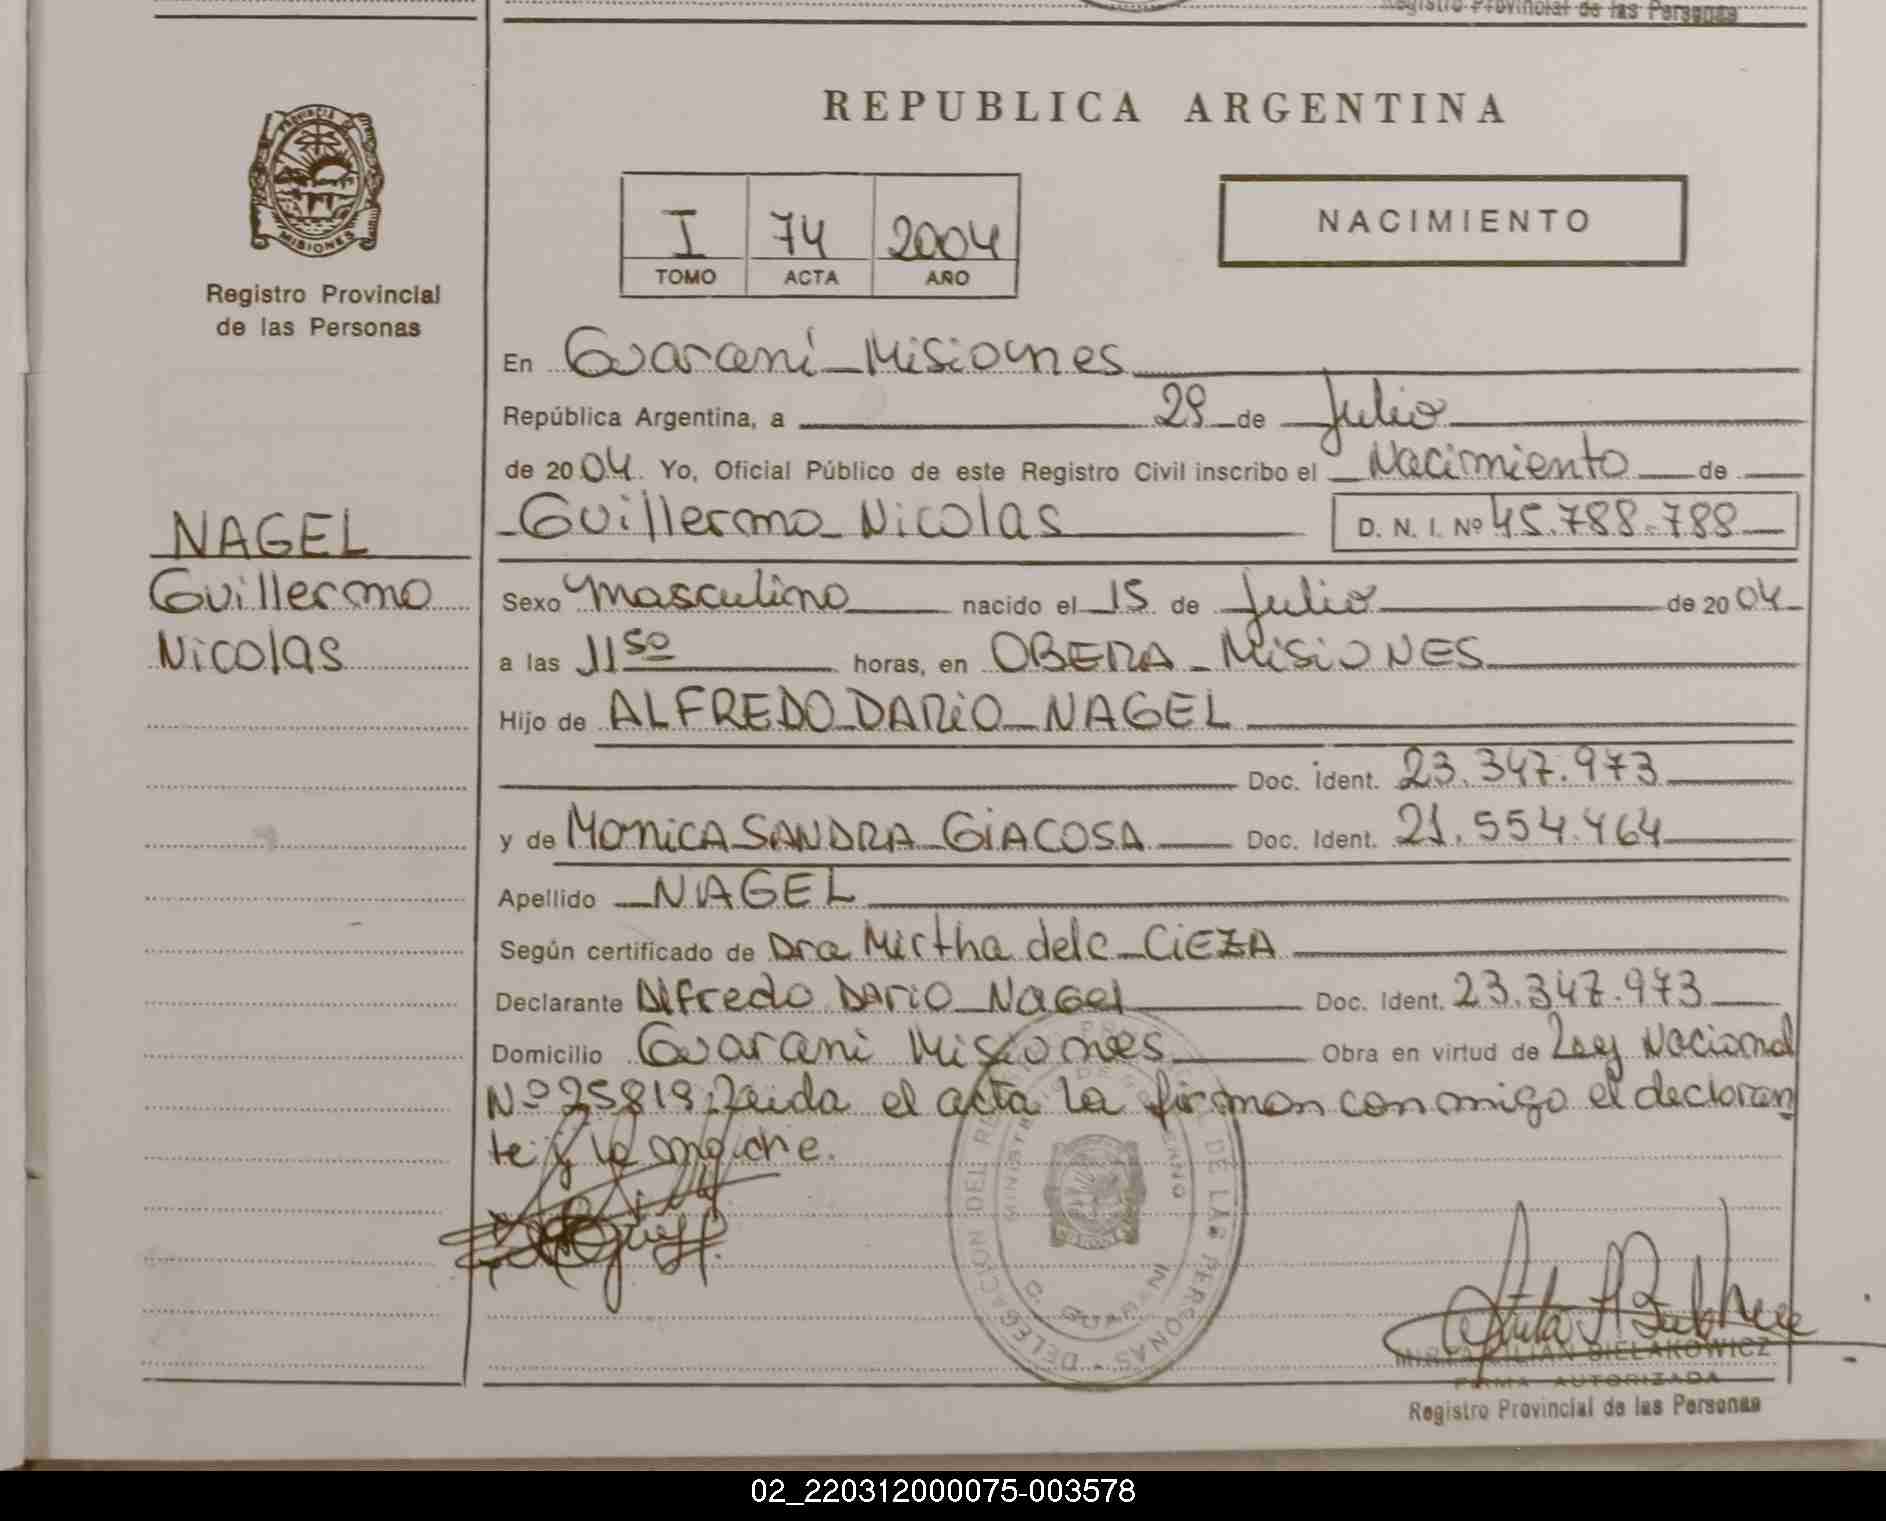 Registro Provincial de las Personas
REPUBLICA ARGENTINA
PROVINCIA DE
MISIONES
Registro Provincial
de las Personas
I 74 2004
TOMO ACTA AÑO
NACIMIENTO
En Guarani Misiones
República Argentina, a 29 de Julio
de 2004. Yo, Oficial Público de este Registro Civil inscribo el Nacimiento de
Guillermo Nicolas D. N. I. Nº 45.788.788
NAGEL
Guillermo
Nicolas
Sexo masculino nacido el 15 de Julio de 2004
a las 11 50 horas, en OBERA MISIONES
Hijo de ALFREDO DARIO NAGEL
Doc. Ident. 23.347.973
y de MONICA SANDRA GIACOSA Doc. Ident. 21.554.464
Apellido NAGEL
Según certificado de Dra Mirtha del c CIEZA
Declarante Alfredo Dario Nagel Doc. Ident. 23.347.973
Domicilio Guarani Misiones Obra en virtud de Ley Nacional
Nº 25819. Leida el acta la firman conmigo el declaran
te y la madre.
DELEGACION DEL REGISTRO PROVINCIAL DE LAS PERSONAS
MINISTERIO DE GOBIERNO
GUARANI
MIRTA LILIAN BIELAKOWICZ
FIRMA AUTORIZADA
Registro Provincial de las Personas
02_220312000075-003578